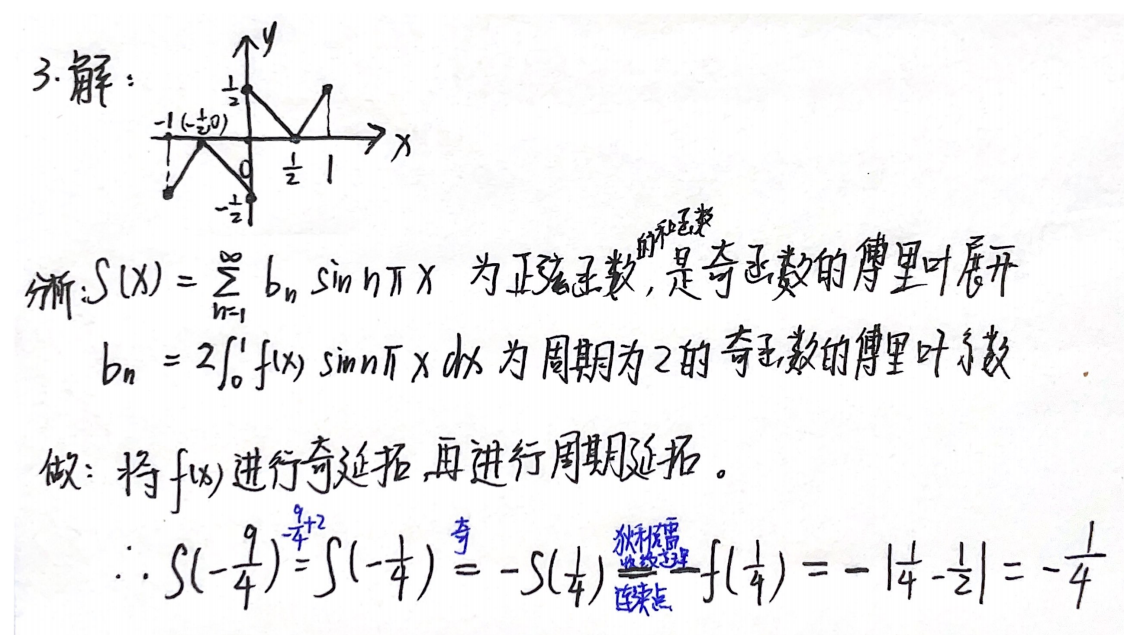 3.解：
y
1/2
-1 (-1/2,0)
0 1/2 1 x
-1/2
的和函数
分析:S(x) = ∑_{n=1}^{∞} b_n sin nπx 为正弦函数,是奇函数的傅里叶展开
b_n = 2∫_0^1 f(x) sin nπx dx 为周期为2的奇函数的傅里叶系数
做：将f(x)进行奇延拓,再进行周期延拓。
-9/4+2 奇 狄利克雷收敛定理 连续点
∴ S(-9/4) = S(-1/4) = -S(1/4) = -f(1/4) = -|1/4 - 1/2| = -1/4